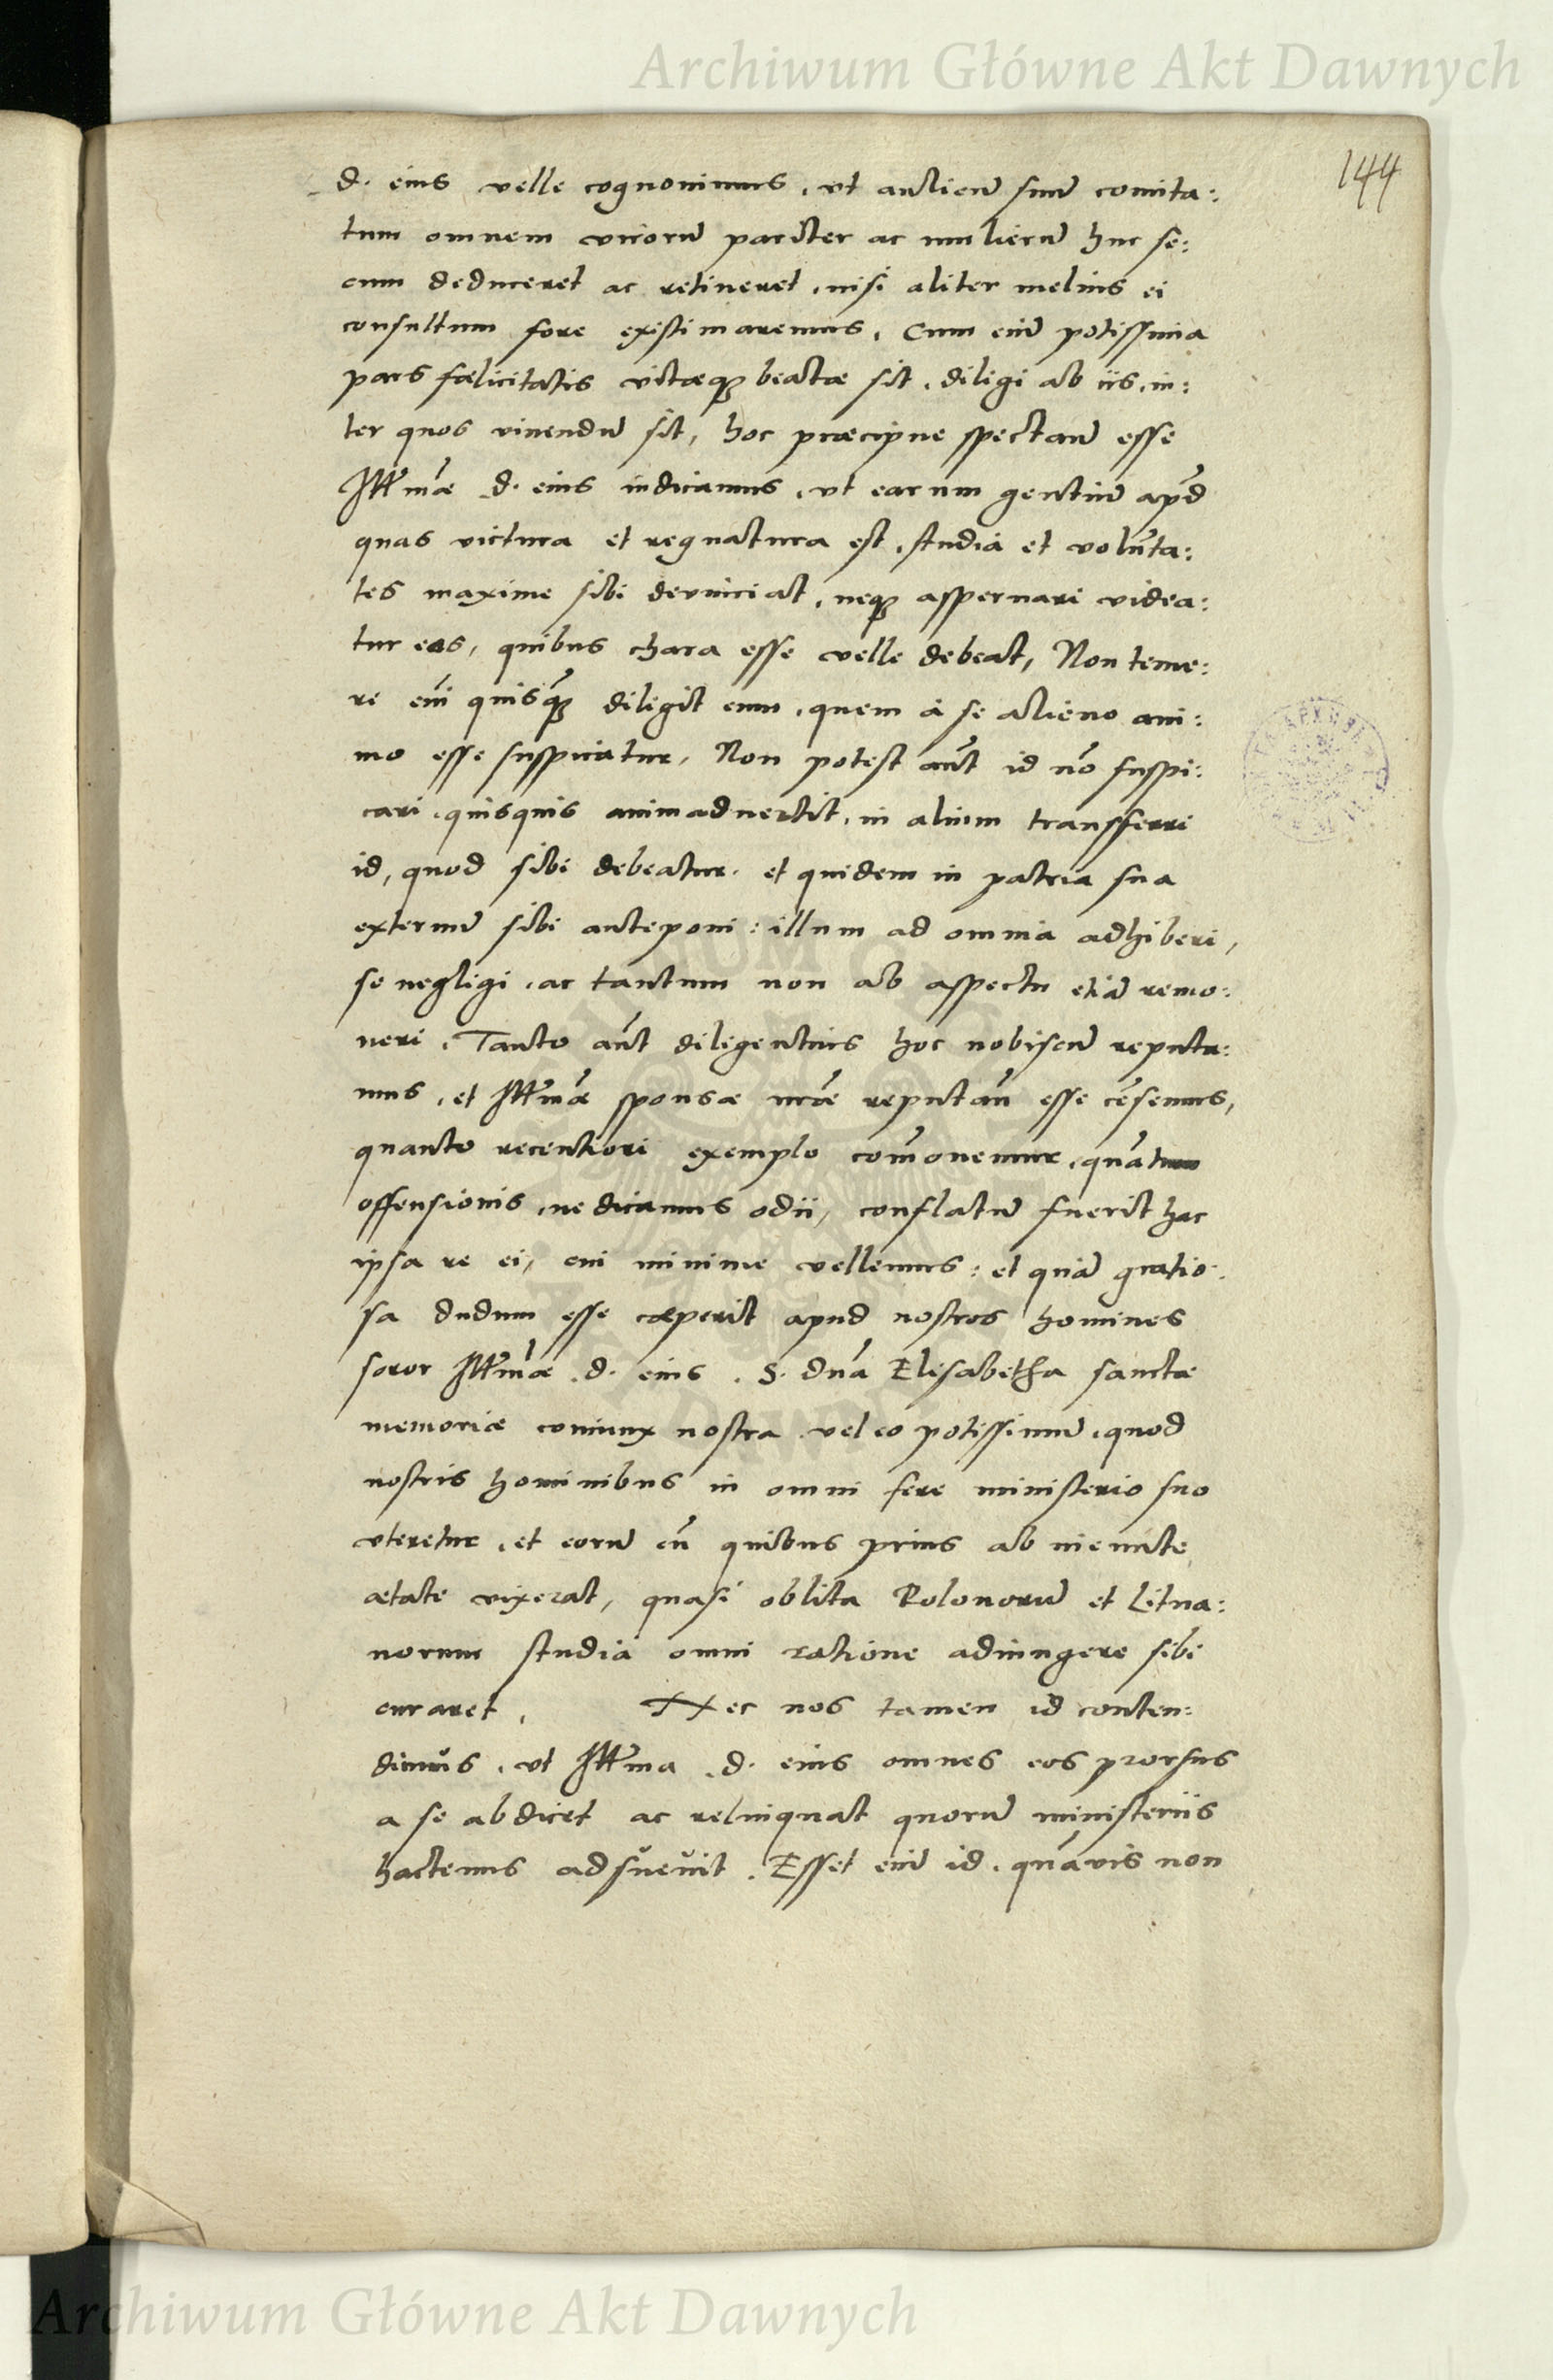 Archiwum Główne Akt Dawnych
144
d. eius velle cognovimus, ut aulicũ suũ comita:
tum omnem virorũ pariter ac mulierũ huc se:
cum deduceret ac retineret, nisi aliter melius ei
consultum fore existimaremus. Cum enĩ potissima
pars fœlicitatis vitæq; beatæ sit, diligi ab iis, in:
ter quos vivendũ sit, hoc præcipue spectanũ esse
Illm̃æ d. eius iudicamus, ut earum gentiũ apd̃
quas victura et regnatura est, studia et volũta:
tes maxime sibi devinciat, neq; aspernari videa:
tur eas, quibus chara esse velle debeat, Non teme:
re enĩ quisq̃; diligit eum, quem à se alieno ani:
mo esse suspicatur, Non potest aũt id nõ suspi:
cari, quisquis animadvertit, in alium transferri
id, quod sibi debeatur, et quidem in patria sua
externũ sibi anteponi: illum ad omnia adhiberi,
se negligi, ac tantum non ab aspectu etiã remo:
veri. Tanto aũt diligentius hoc nobiscũ reputa:
mus, et Illm̃æ sponsæ nr̃æ reputañ esse cẽsemus,
quanto recentiori exemplo com̃onemur, quãtum
offensionis, ne dicamus odii, conflatũ fuerit hac
ipsa re ei, cui minime vellemus: et quã gratio:
sa dudum esse cœperit apud nostros homines
soror Illm̃æ d. eius . S. dña Elisabetha sanctæ
memoriæ coniunx nostra vel eo potissimũ, quod
nostris hominibus in omni fere ministerio suo
uteretur, et eorũ cũ quibus prius ab ineunte
ætate vixerat, quasi oblita Polonorũ et Litua:
norum studia omni ratione adiungere sibi
curaret. Nec nos tamen id conten:
dimus, ut Illm̃a d. eius omnes eos prorsus
a se abdicet ac relinquat quorũ ministeriis
hactenus adsuevit. Esset enĩ id, quãvis non
Archiwum Główne Akt Dawnych